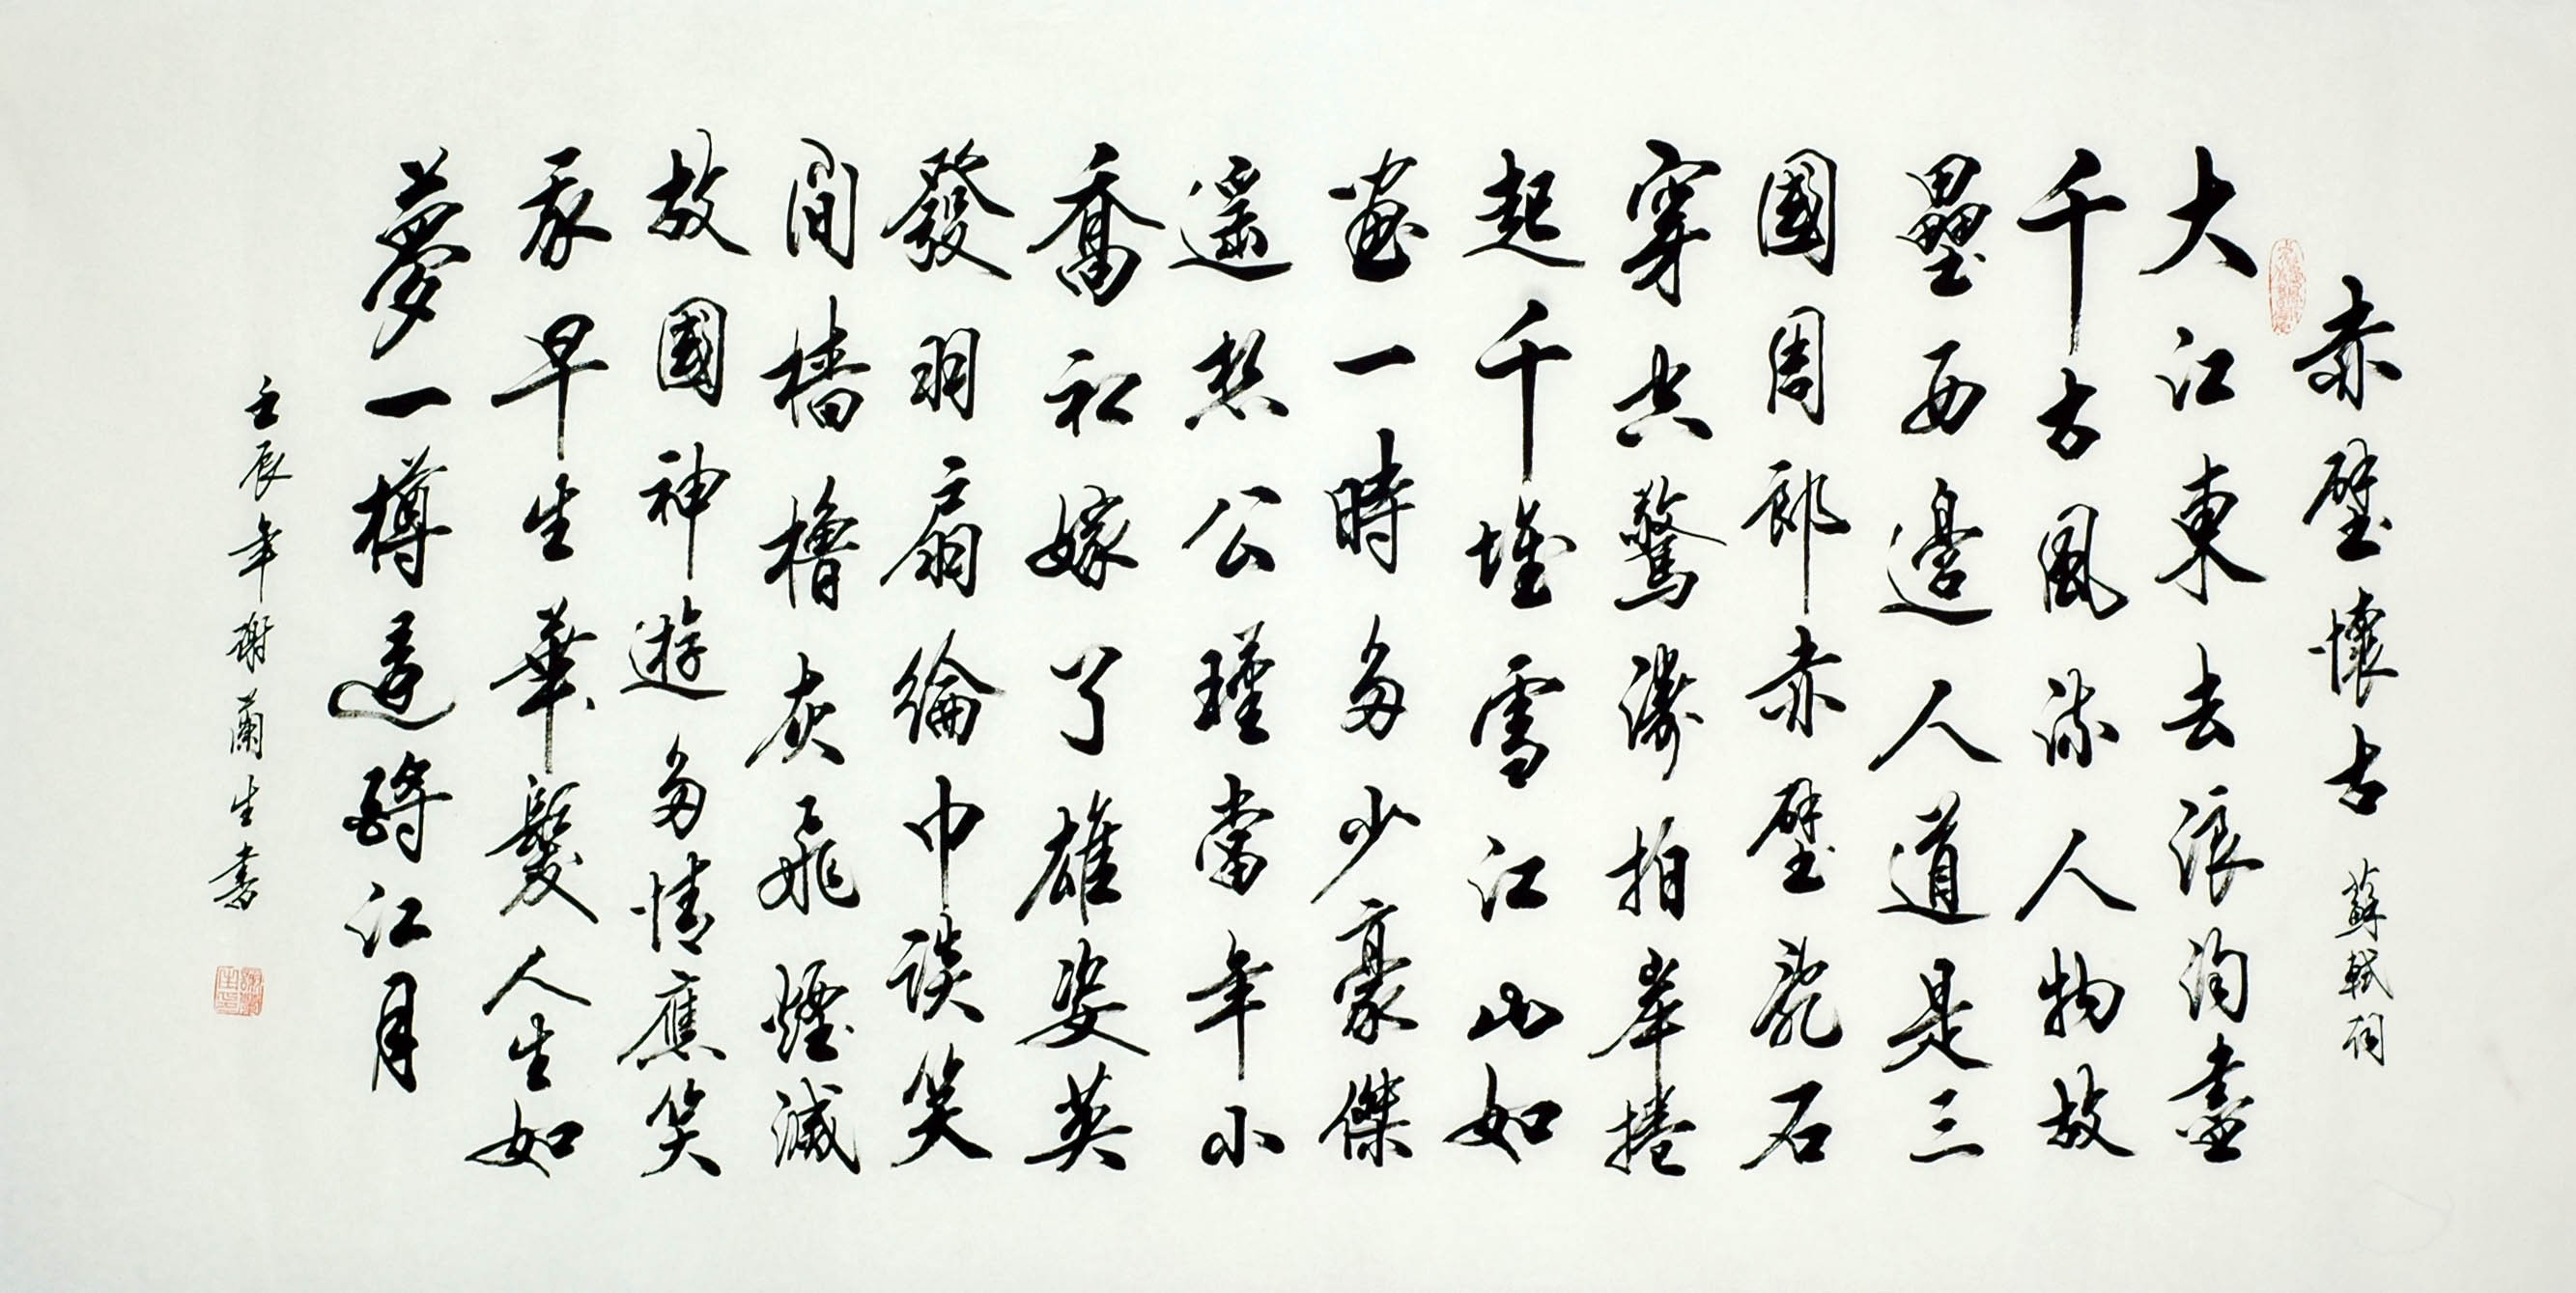 赤壁懷古 蘇軾詞
大江東去浪淘盡
千古風流人物故
壘西邊人道是三
國周郎赤壁亂石
穿空驚濤拍岸捲
起千堆雪江山如
畫一時多少豪傑
遥想公瑾當年小
喬初嫁了雄姿英
發羽扇綸巾談笑
間檣櫓灰飛煙滅
故國神遊多情應笑
我早生華髮人生如
夢一樽還酹江月
壬辰年謝蘭生書